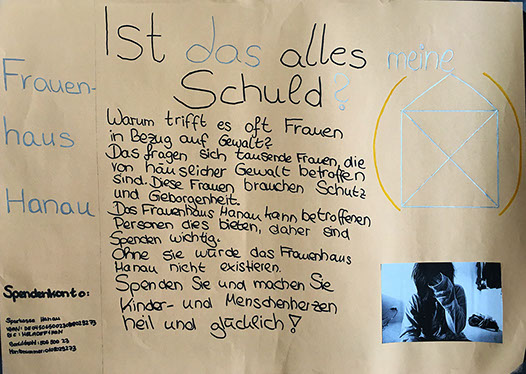 Ist das alles meine
Schuld?
Frauen-
haus
Hanau
Warum trifft es oft Frauen
in Bezug auf Gewalt?
Das fragen sich tausende Frauen, die
von häuslicher Gewalt betroffen
sind. Diese Frauen brauchen Schutz
und Geborgenheit.
Das Frauenhaus Hanau kann betroffenen
Personen dies bieten, daher sind
Spenden wichtig.
Ohne sie würde das Frauenhaus
Hanau nicht existieren.
Spenden Sie und machen Sie
Kinder- und Menschenherzen
heil und glücklich!
Spendenkonto:
Sparkasse Hanau